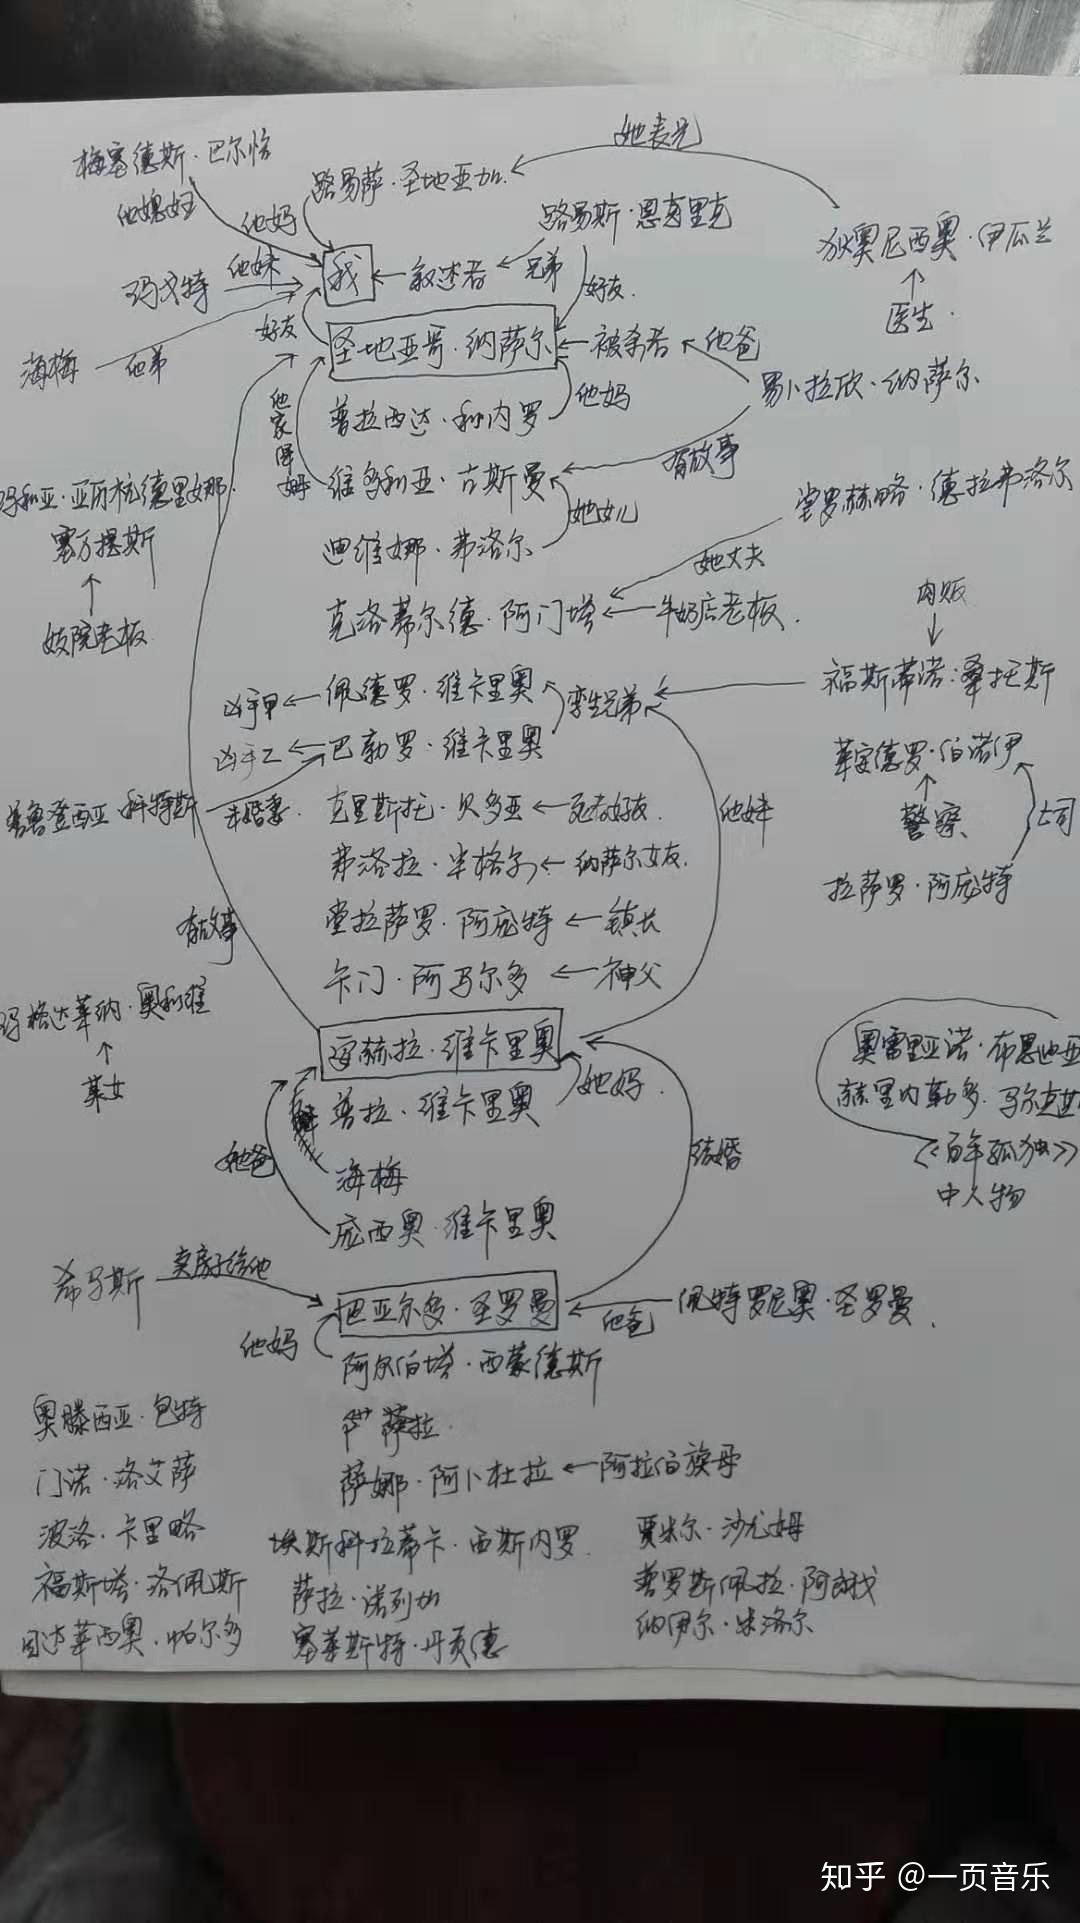 她表兄
梅塞德斯·巴尔恰
路易萨·圣地亚加
他媳妇
他妈
路易斯·恩里克
狄奥尼西奥·伊瓜兰
玛戈特
他妹
我
叙述者
兄弟
好友
医生
好友
圣地亚哥·纳萨尔
被杀者
他爸
海梅
他弟
易卜拉欣·纳萨尔
他家
姆
普拉西达·利内罗
他妈
维多利亚·古斯曼
有故事
玛利亚·亚历杭德里娜
塞万提斯
堂罗赫略·德拉弗洛尔
迪维娜·弗洛尔
她女儿
她丈夫
妓院老板
克洛蒂尔德·阿门塔
牛奶店老板
肉贩
凶手甲
佩德罗·维卡里奥
孪生兄弟
福斯蒂诺·桑托斯
凶手乙
巴勃罗·维卡里奥
莱安德罗·伯诺伊
普鲁登西亚·科特斯
未婚妻
克里斯托·贝多亚
死者好友
他妹
警察
上司
弗洛拉·米格尔
纳萨尔女友
拉萨罗·阿庞特
有故事
堂拉萨罗·阿庞特
镇长
卡门·阿马尔多
神父
玛格达莱纳·奥利维
安赫拉·维卡里奥
奥雷里亚诺·布恩迪亚
妓女
普拉·维卡里奥
她妈
赫里内勒多·马尔克斯
她爸
海梅
结婚
《百年孤独》
中人物
庞西奥·维卡里奥
希乌斯
卖房子给他
巴亚尔多·圣罗曼
他爸
佩特罗尼奥·圣罗曼
他妈
阿尔伯塔·西蒙德斯
奥滕西亚·包特
萨拉
门诺·洛艾萨
萨娜·阿卜杜拉
阿拉伯族母
波洛·卡里略
埃斯科拉蒂卡·西斯内罗
贾米尔·沙尤姆
福斯塔·洛佩斯
萨拉·诺列加
普罗斯佩拉·阿朗戈
因达莱西奥·帕尔多
塞莱斯特·丹贡德
纳伊尔·米洛尔
知乎 @一页音乐